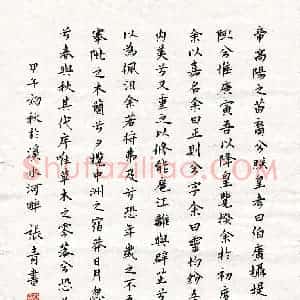 帝高陽之苗裔兮朕皇考曰伯庸攝提
陬兮惟庚寅吾以降皇覽揆余於初度
余以嘉名余曰正則兮字余曰靈均紛吾
內美兮又重之以修能扈江離與辟芷兮
以為佩汨余若將弗及兮恐年歲之不吾
搴阰之木蘭兮夕攬中洲之宿莽日月忽
兮春與秋其代序惟草木之零落兮恐
甲午初秋於河畔張書
Shufaziliao.com